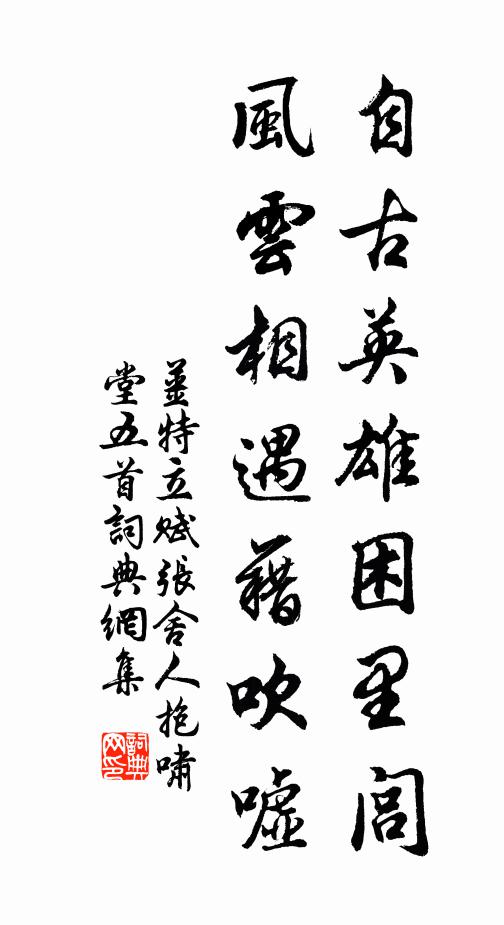 自古英雄困里閭
風雲相遇藉吹噓
姜特立賦張舍人抱嘯
堂五首詞典網集
詞典
网印